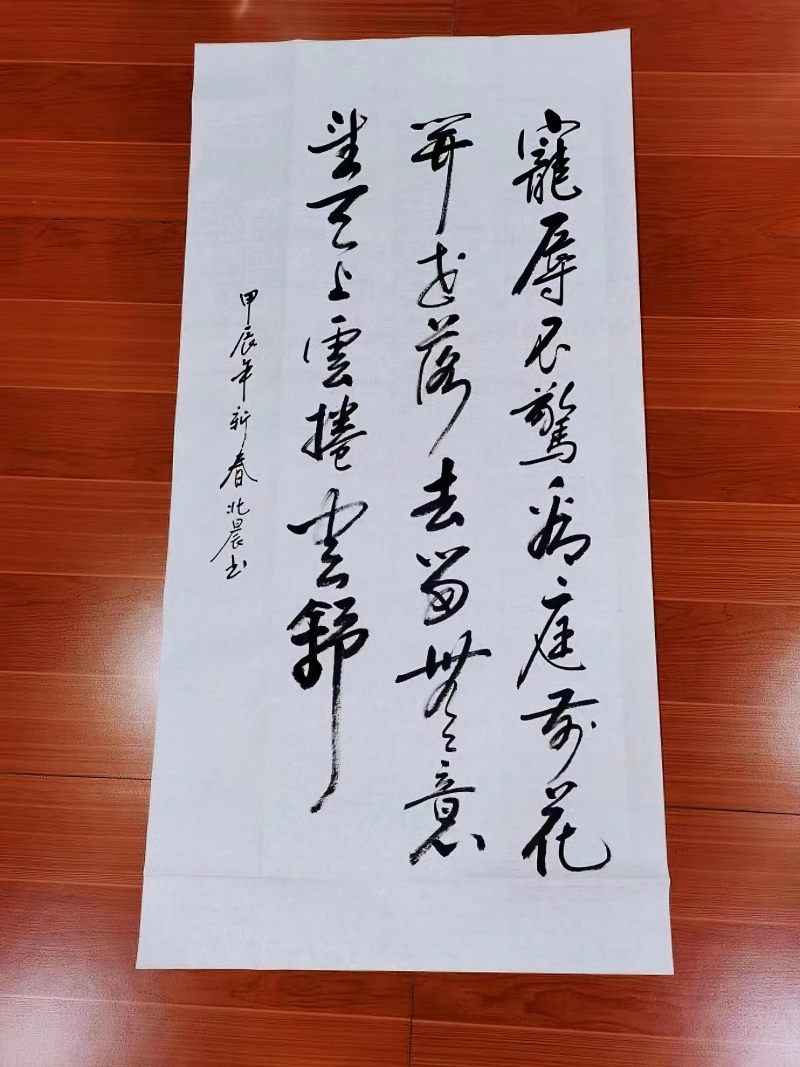 寵辱不驚看庭前花
開花落去留無意
望天上雲捲雲舒
甲辰年新春北晨书